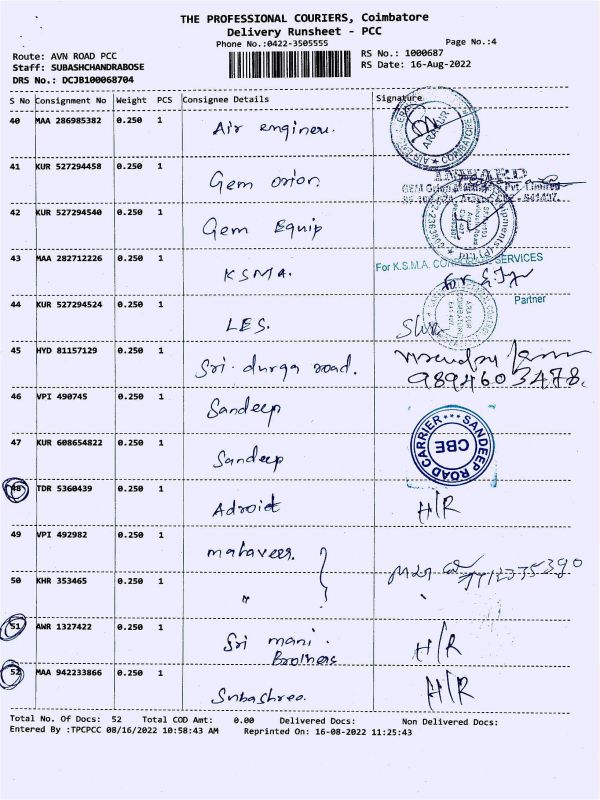 THE PROFESSIONAL COURIERS, Coimbatore
Delivery Runsheet - PCC
Phone No.:0422-3505555
Page No.:4
Route: AVN ROAD PCC
RS No.: 1000687
Staff: SUBASHCHANDRABOSE
RS Date: 16-Aug-2022
DRS No.: DCJB100068704
S No Consignment No Weight PCS Consignee Details Signature
40 MAA 286985382 0.250 1 Air engineer.
41 KUR 527294458 0.250 1 Gem orion
42 KUR 527294540 0.250 1 Gem Equip
43 MAA 282712226 0.250 1 KSMA.
For K.S.M.A. SERVICES
Partner
44 KUR 527294524 0.250 1 LES.
45 HYD 81157129 0.250 1 Sri durga road.
9894603478.
46 VPI 490745 0.250 1 Sandeep
SANDEEP ROAD CARRIER *** CBE
47 KUR 608654822 0.250 1 Sandeep
48 TDR 5360439 0.250 1 Adroit H/R
49 VPI 492982 0.250 1 mahaveer.
50 KHR 353465 0.250 1 "
51 AWR 1327422 0.250 1 Sri mani. H/R
Brothers
52 MAA 942233866 0.250 1 Subashree. H/R
Total No. Of Docs: 52 Total COD Amt: 0.00 Delivered Docs: Non Delivered Docs:
Entered By :TPCPCC 08/16/2022 10:58:43 AM Reprinted On: 16-08-2022 11:25:43